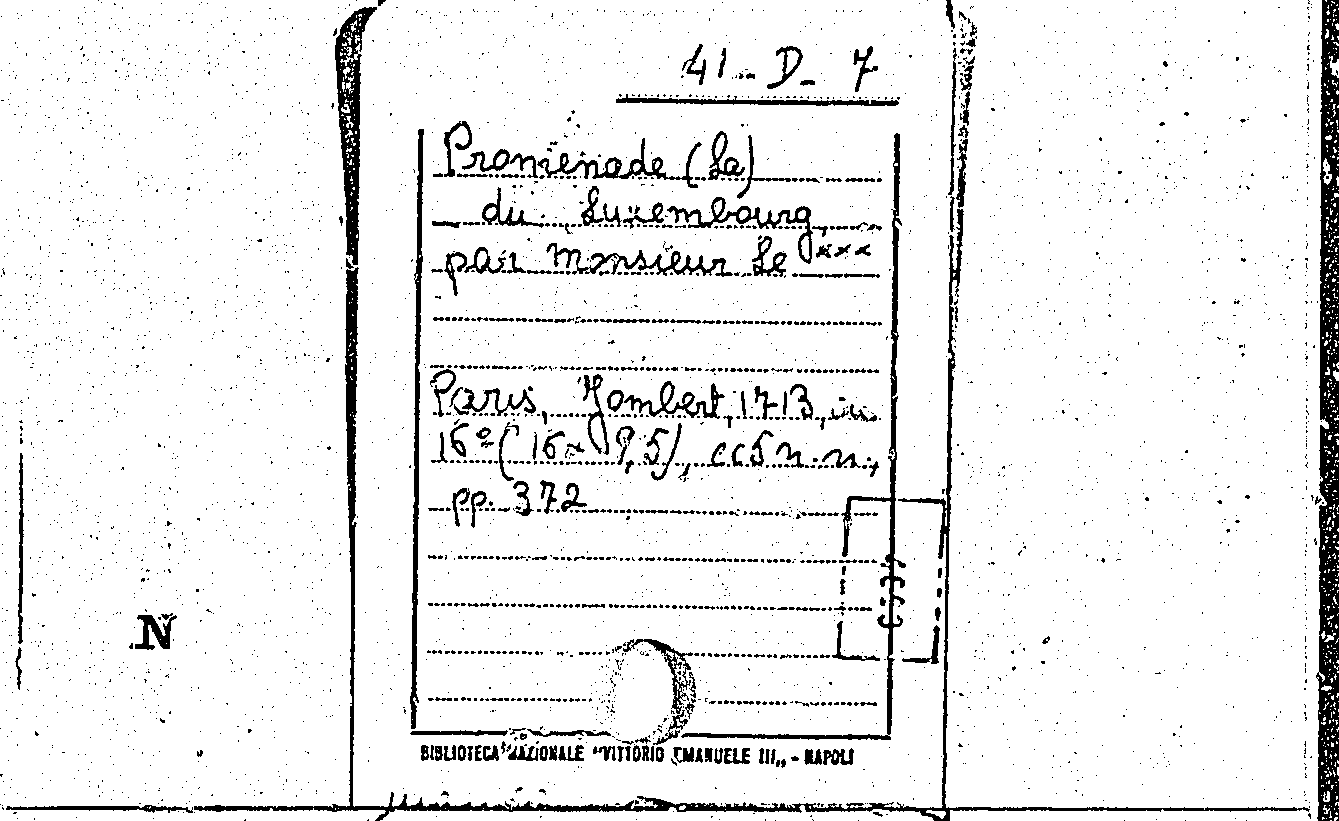 41 - D - 7
Promenade (La)
— du Luxembourg,
par Monsieur Le ***
Paris, Jombert, 1713, in
16º (16 x 9,5), cc 5 n. n.,
pp. 372
N
BIBLIOTECA NAZIONALE "VITTORIO EMANUELE III„ - NAPOLI